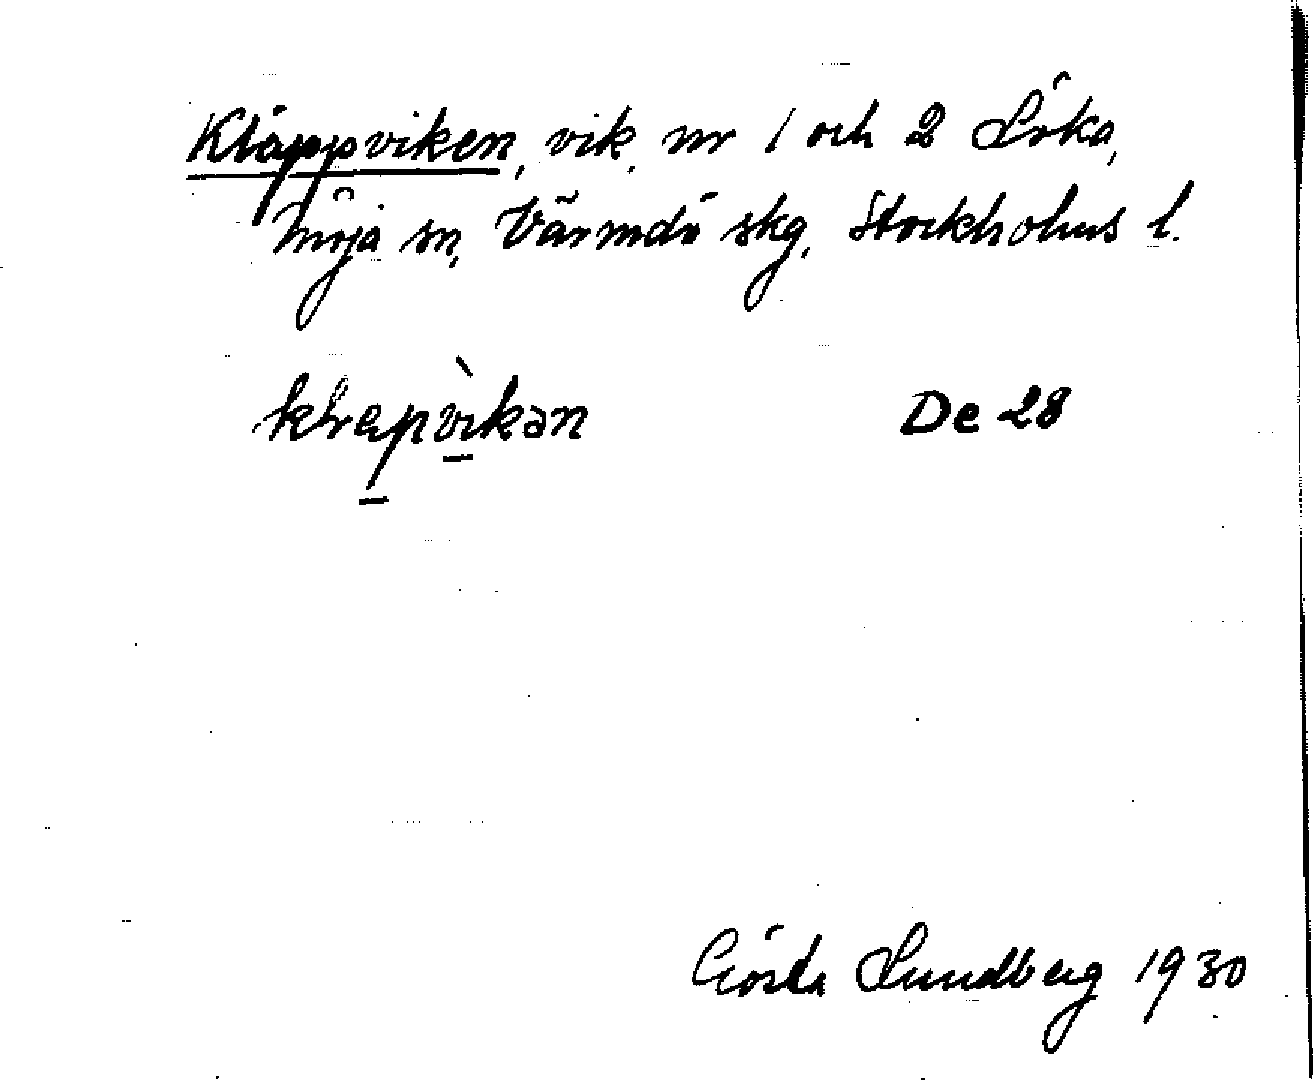 Kläppviken, vik, nr 1 och 2 Löka,
Möja sn, Värmdö skg, Stockholms l.
klæpvìkən De 28
Gösta Lundberg 1930